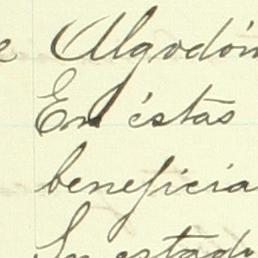 e Algodón
En éstas
beneficia
Su estad